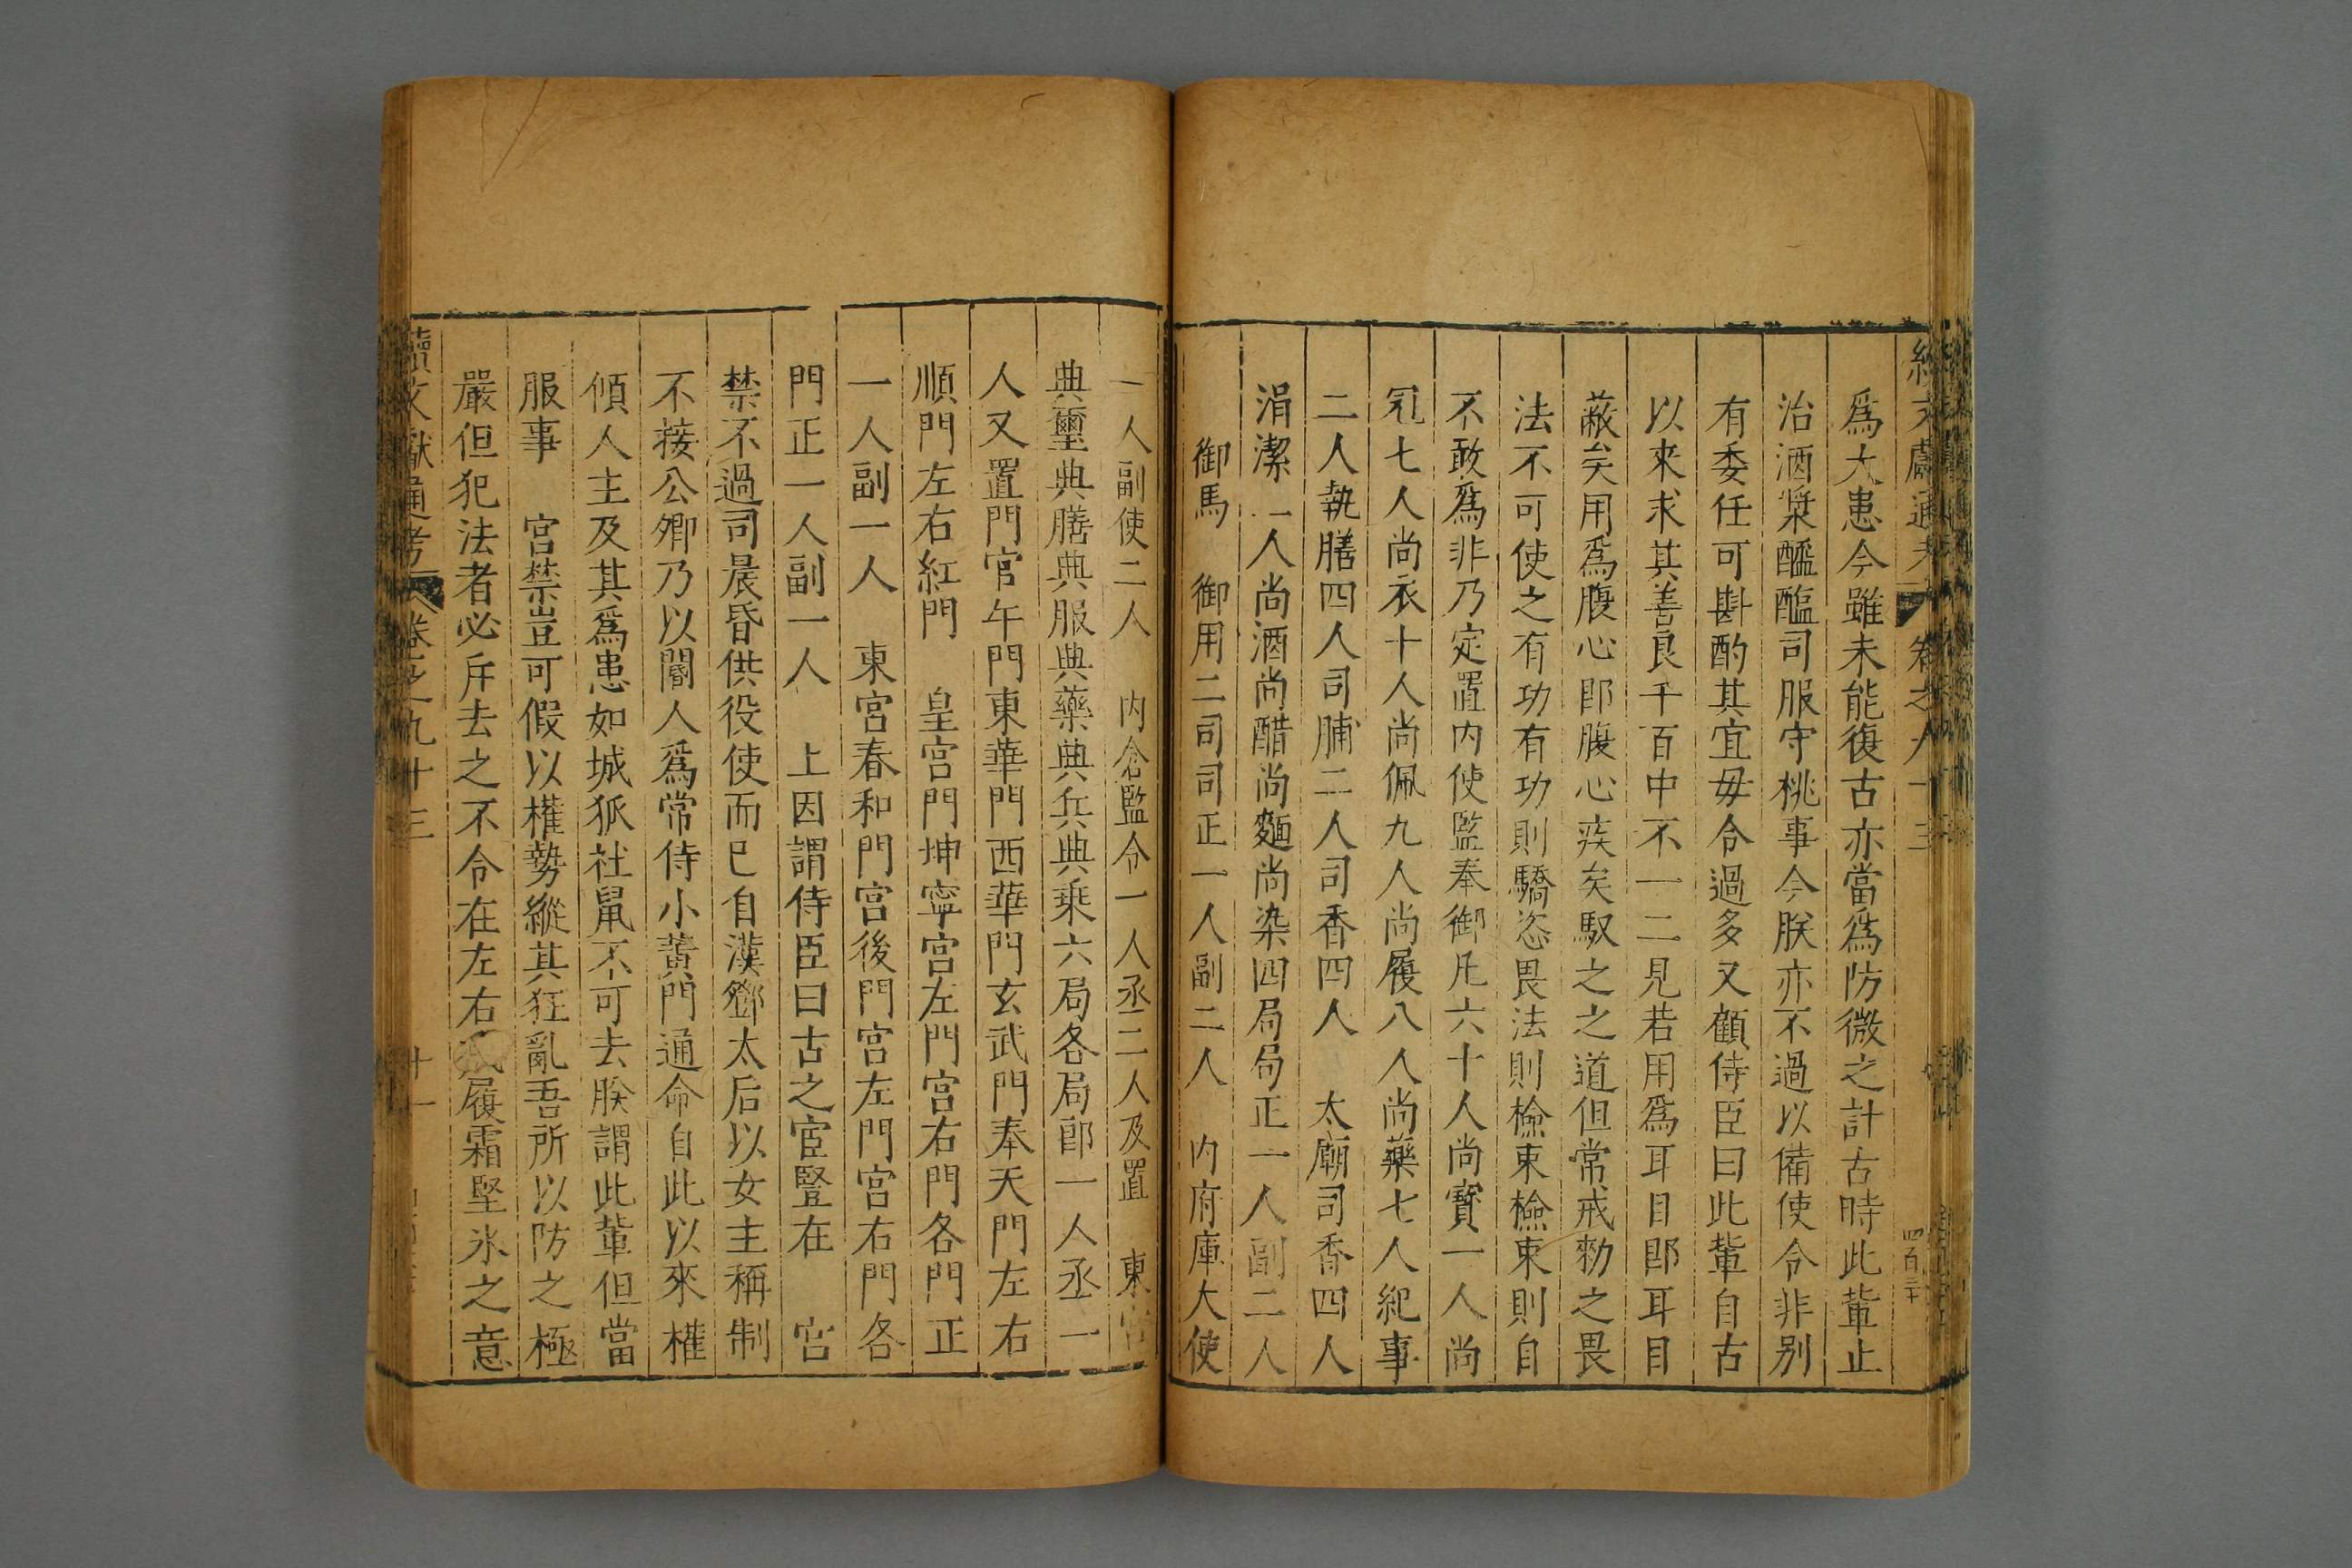 爲大患今雖未能復古亦當爲防微之計古時此輩止
治酒漿醯醢司服守祧事今朕亦不過以備使令非别
有委任可斟酌其宜毋令過多又顧侍臣曰此輩自古
以來求其善良千百中不一二見若用爲耳目即耳目
蔽矣用爲腹心即腹心疾矣馭之之道但常戒勑之畏
法不可使之有功有功則驕恣畏法則檢束檢束則自
不敢爲非乃定置内使監奉御凡六十人尚寶一人尚
冠七人尚衣十人尚佩九人尚履八人尚藥七人紀事
二人執膳四人司脯二人司香四人　太廟司香四人
涓潔一人尚酒尚醋尚麵尚染四局局正一人副二人
御馬　御用二司司正一人副二人　内府庫大使
一人副使二人　内倉監令一人丞二人及置　東宫
典璽典膳典服典藥典兵典乗六局各局郎一人丞一
人又置門官午門東華門西華門玄武門奉天門左右
順門左右紅門　皇宫門坤寧宫左門宫右門各門正
一人副一人　東宫春和門宫後門宫左門宫右門各
門正一人副一人　上因謂侍臣曰古之宦豎在　宫
禁不過司晨昏供役使而已自漢鄧太后以女主稱制
不接公卿乃以閹人爲常侍小黄門通命自此以來權
傾人主及其爲患如城狐社鼠不可去朕謂此輩但當
服事　宫禁豈可假以權勢縱其狂亂吾所以防之極
嚴但犯法者必斥去之不令在左右履霜堅氷之意
續文獻通考　卷之九十三　廿一
四百二十